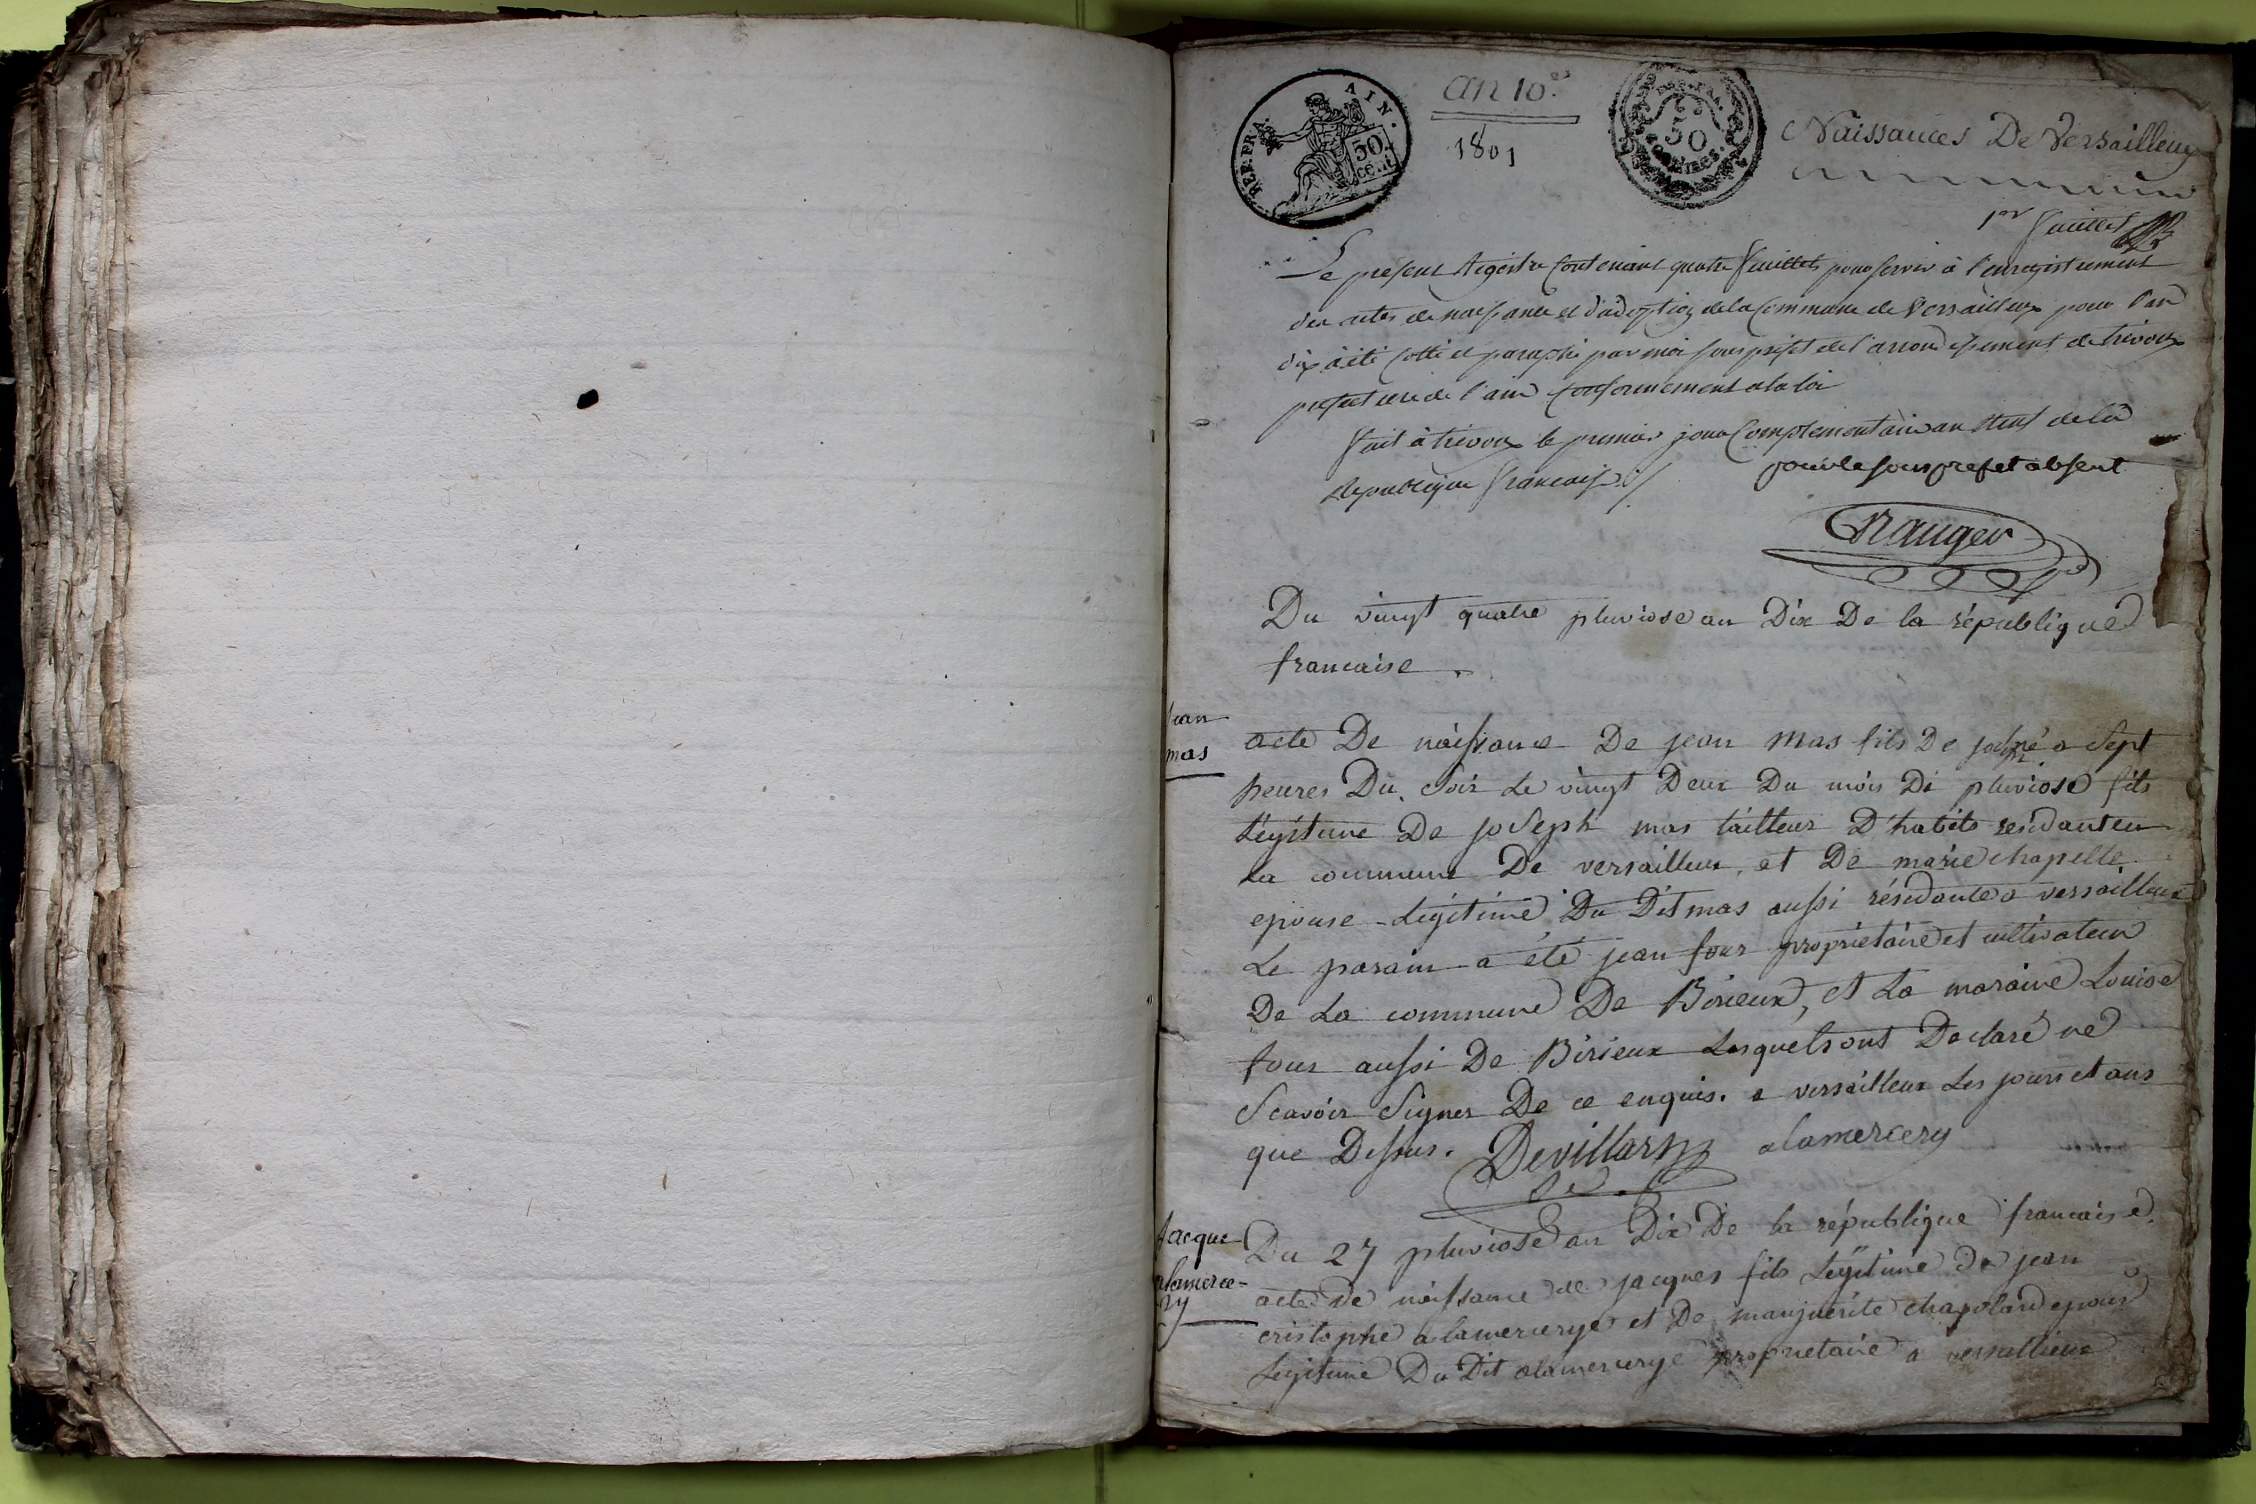 REP. FRA. AIN.
50 cent
an 10e
1801
50
CENTIMES.
Naissances De Versailleux
1er feuillet
Le present Registre Contenant quatre feuillets pour servir à l'enregistrement
des actes de naissance et d'adoption de la Commune de Versailleux pour l'an
dix a été cotté et paraphé par moi sous prefet de l'arrondissement de trevoux
prefecture de l'ain conformement a la loi
fait à trevoux le premier jour Complementaire an neuf de la
Republique francaise ./.
pour le sous prefet absent
Nauger
Du vingt quatre pluviose an Dix De la république
francaise.
Jean
mas
acte De naissance De jean mas fils De joseph né a sept
heures Du soir Le vingt Deux Du mois De pluviose fils
Légitime De joseph mas tailleur D'habits residant en
La commune De versailleux, et De marie chapelle
epouse Légitime Du Dit mas aussi résidante a versailleux
Le parain a été jean four propriétaire et cultivateur
De La commune De Birieux, et La maraine Louise
four aussi De Birieux Lesquels ont Declaré ne
Scavoir Signer De ce enquis. a versailleux Les jours et ans
que Dessus. Devillars alamercery
Jacque
alamerce-
ry
Du 27 pluviose an Dix De la république francaise.
acte De naissance de jacques fils Légitime De jean
cristophe alamercerye et De marguerite chapoland epouse
Legitime Du Dit alamercerye propriétaire a versailleux